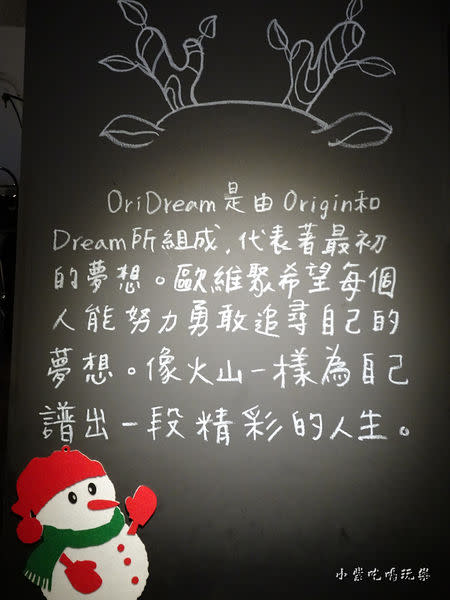 OriDream是由Origin和
Dream所組成,代表著最初
的夢想。歐維聚希望每個
人能努力勇敢追尋自己的
夢想。像火山一樣為自己
譜出一段精彩的人生。
小紫吃喝玩樂